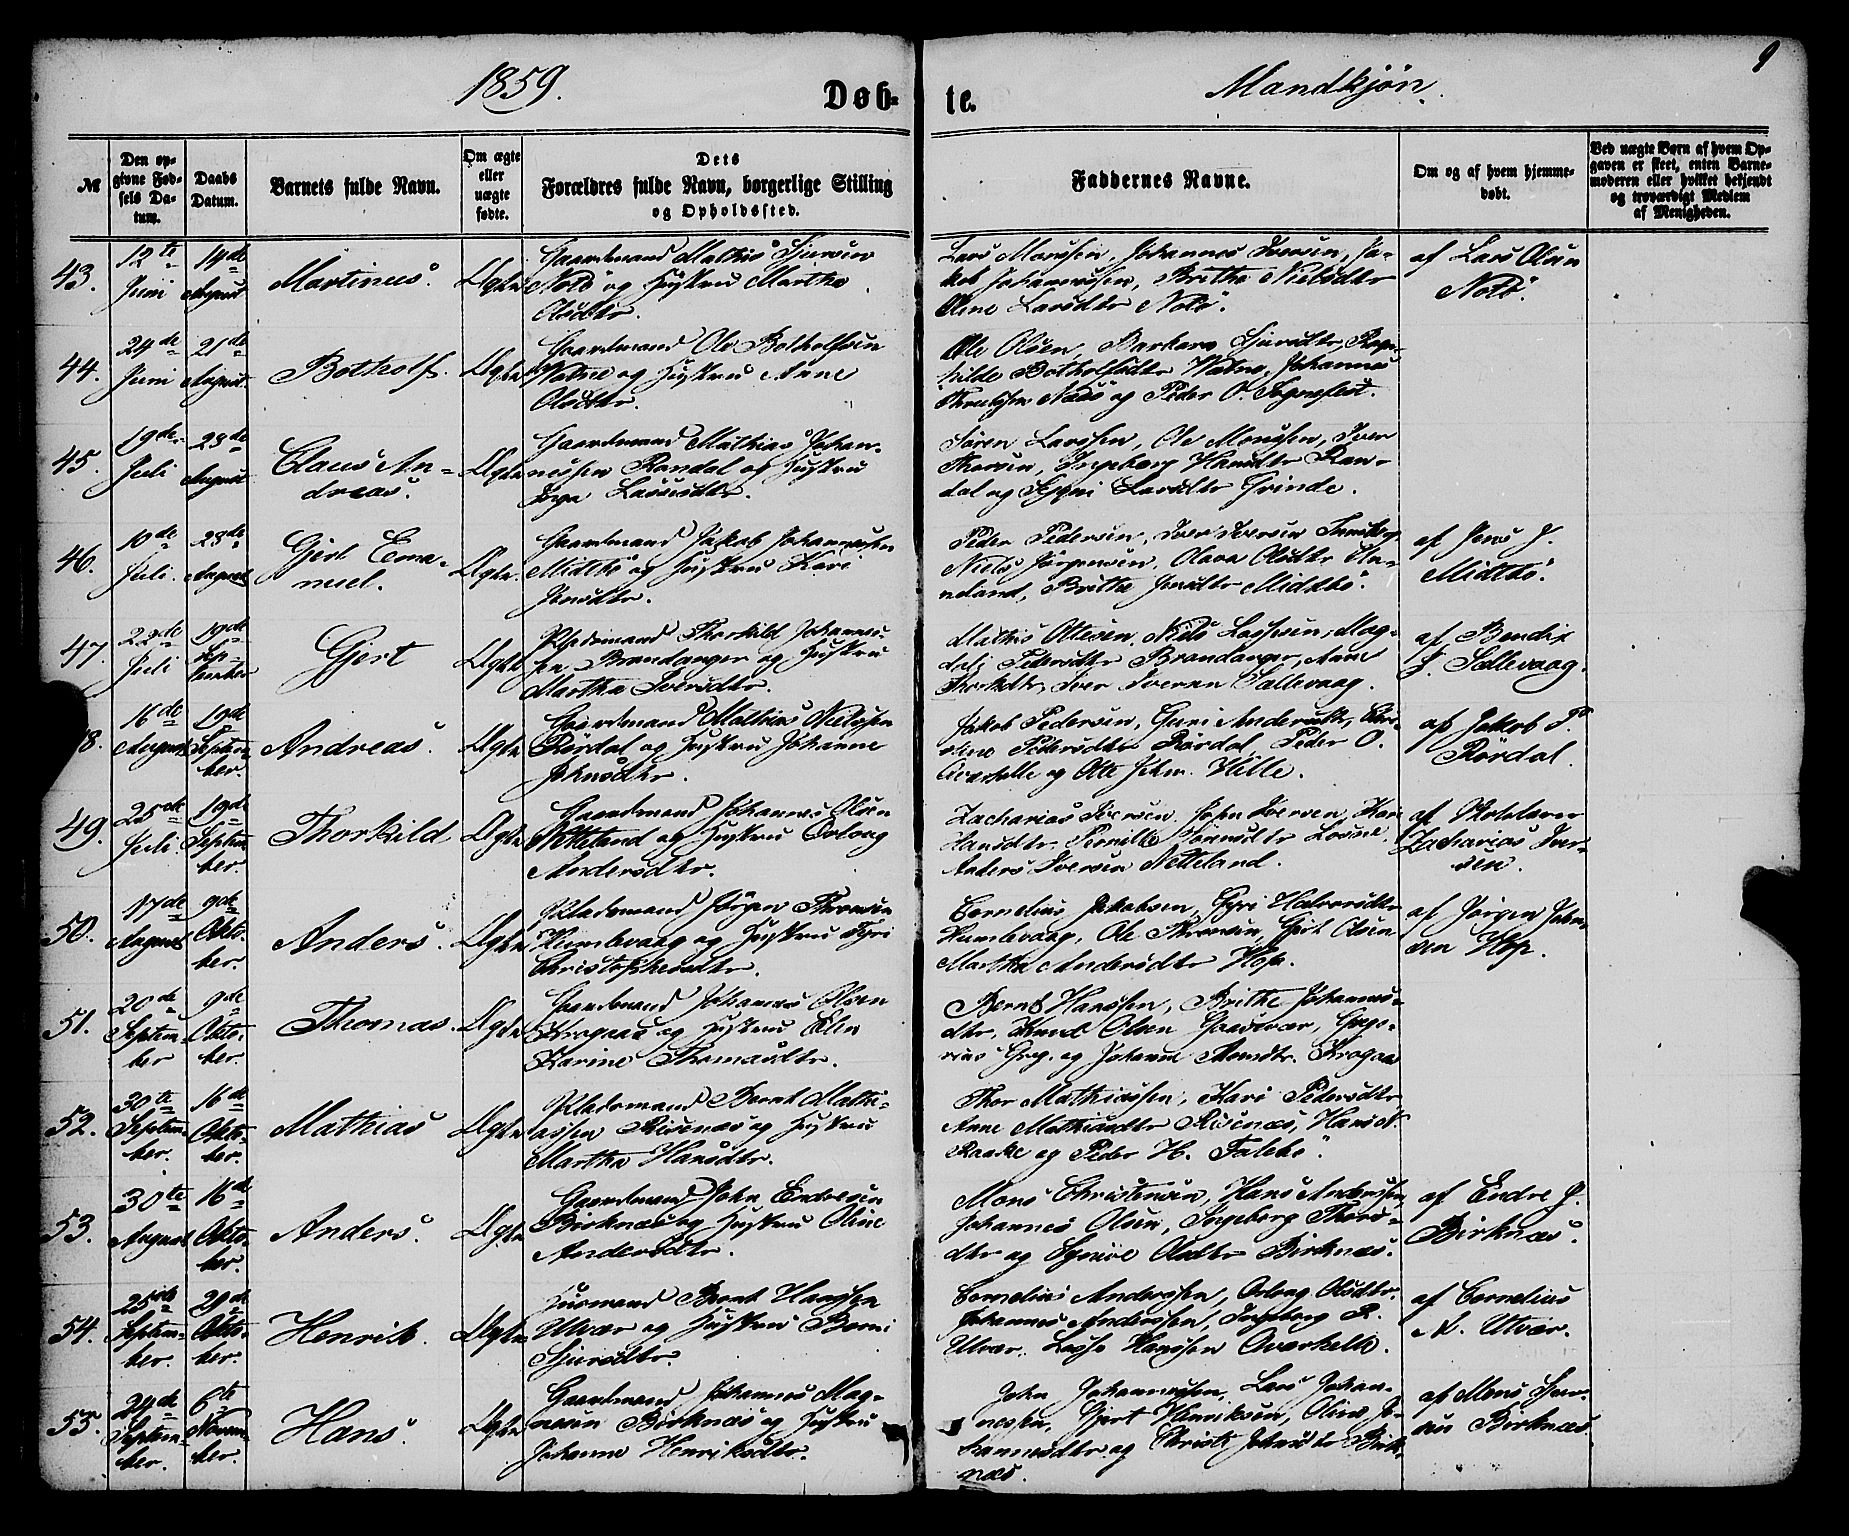 1859.
Døb-
te.
Mandkjøn.
9
№
Den op-
givne Fød-
sels Da-
tum.
Daabs
Datum.
Barnets fulde Navn.
Om ægte
eller
uægte
fødte.
Dets
Forældres fulde Navn, borgerlige Stilling
og Opholdssted.
Faddernes Navne.
Om og af hvem hjemme-
døbt.
Ved uægte Børn af hvem Op-
gaven er skeet, enten Barne-
moderen eller hvilket bekjendt
og troværdigt Medlem
af Menigheden.
43.
12te
Juni
14de
August
Martinus.
Ægte
Gaardmand Mathis Sjursen
og Hustru Martha
Olsdtr.
Lars Monssen, Johannes Iversen, Ja-
kob Johannessen, Brithe Nielsdtr
Oline Larsdtr
af Lars Olsen
44.
24de
Juni
21de
August
Botholf.
Ægte
Gaardmand Ole Botholfsen
og Hustru Anne
Olsdtr.
Ole Olsen, Barbara Sjursdtr, Ragn-
hilde Botholfsdtr Johannes
og Peder O. Sognefest.
45.
19de
Juli
28de
August
Claus An-
dreas.
Ægte
Gaardmand Mathias Johan-
nessen Randal og Hustru
Lassesdtr.
Søren Larssen, Ole Monssen, Iver
Thorsen, Ingeborg Hansdtr Ran-
dal og Larsdtr Grinde.
46.
10de
Juli.
28de
August
Gjert Ema-
nuel.
Ægte.
Gaardmand Jakob Johannessen
Midtbö og Hustru Kari
Jensdtr.
Peder Pedersen, Iver Iversen
Niels Jörgensen, Olava Olsdtr
Brithe Jensdtr Midtbö.
af Jens J.
Midtbö.
47.
22de
Juli
19de
Sep-
tember
Gjert
Ægte
Pladsmand Thorkild Johannes-
sen Brandanger og Hustru
Martha Iversdtr.
Mathis Ottesen, Niels Lassesen, Mag-
dali Pedersdtr Brandanger, Anne
Iver Iversen Sællevaag.
af Bendix
J. Sællevaag.
8.
16de
August
19de
Septem-
ber.
Andreas.
Ægte
Gaardmand Mathias Nielssen
Rördal og Hustru Johanne
Johnsdtr.
Jakob Pedersen, Guri Andersdtr,
Pedersdtr Rördal, Peder O.
og Otte Johns. Hille.
af Jakob P.
Rördal.
49.
25de
Juli.
19de
Septem-
ber.
Thorkild
Ægte
Gaardmand Johannes Olsen
Netteland og Hustru Ovloug
Andersdtr.
Zacharias Iversen, John Iversen, Kari
Hansdtr, Pernille
Anders Iversen Netteland.
af Skolelærer
Zacharias Iver-
sen.
50.
17de
August
9de
Okto-
ber.
Anders.
Ægte
Pladsmand Jörgen Thronsen
Humlevaag og Hustru Gyri
Christophersdtr.
Cornelius Jakobsen, Gyri Halvorsdtr
Humlevaag, Ole Thronsen, Gjert Olsen
Martha Andersdtr Hop.
af Jörgen John-
sen Hop.
51.
20de
Septem-
ber
9de
Okto-
ber.
Thomas.
Ægte
Gaardmand Johannes Olsen
Krogaas og Hustru Elen
Karine Thomasdtr.
Bernt Hanssen, Brithe Johannes-
dtr, Knud Olsen Gaasvær, Greg-
rius Greg. og Johanne Krogaas
52.
30te
Septem-
ber.
16de
Okto-
ber.
Mathias
Ægte
Pladsmand Bernt Mathi-
assen Risenæs og Hustru
Martha Hansdtr.
Thor Mathiassen, Kari Pedersdtr
Anne Mathiasdtr Risenæs, Hans N.
Raake og Peder H. Falebö.
53.
30te
August
16de
Okto-
ber.
Anders.
Ægte
Gaardmand John Endresen
Birknæs og Hustru Oline
Andersdtr.
Mons Christensen, Hans Anderssen,
Johannes Olsen, Ingeborg Thors-
dtr og Synnöe Olsdtr Birknæs.
af Endre J.
Birknæs.
54.
25de
Septem-
ber.
29de
Okto-
ber.
Henrik.
Ægte
Husmand Bernt Hanssen
Utvær og Hustru Borni
Sjursdtr.
Cornelius Anderssen, Ovloug Olsdtr.
Johannes Anderssen, Ingeborg R.
Utvær. Lasse Hanssen
af Cornelius
A. Utvær.
55.
24de
Septem-
ber.
6te
Novem-
ber.
Hans.
Ægte
Gaardmand Johannes Mag-
nesen Birknæs og Hustru
Johanne Henriksdtr.
John Johannessen, Lars Johan-
nessen, Gjert Henriksen, Oline Jo-
hannesdtr og Christi Johnsdtr Birk-
næs.
af Mons
Birknæs.